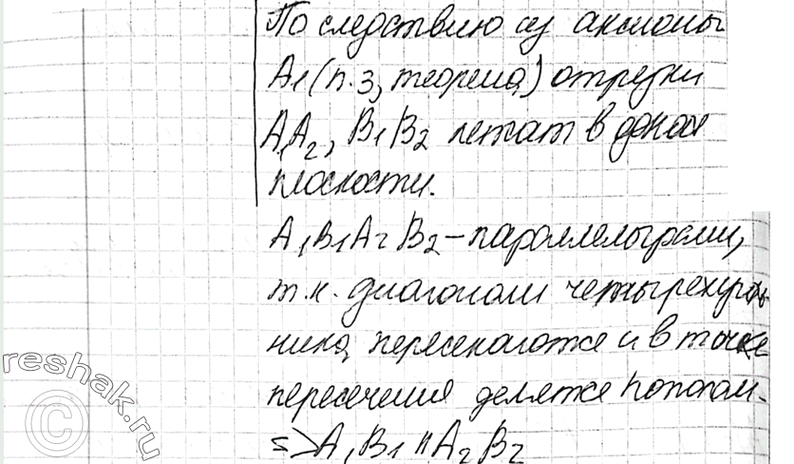 По следствию из аксиомы
А1 (п.3, теорема) отрезки
A₁A₂, B₁B₂ лежат в одной
плоскости.
A₁B₁A₂B₂ – параллелограмм,
т.к. диагонали четырехуголь
ника пересекаются и в точке
пересечения делятся пополам.
=> A₁B₁ || A₂B₂
reshak.ru